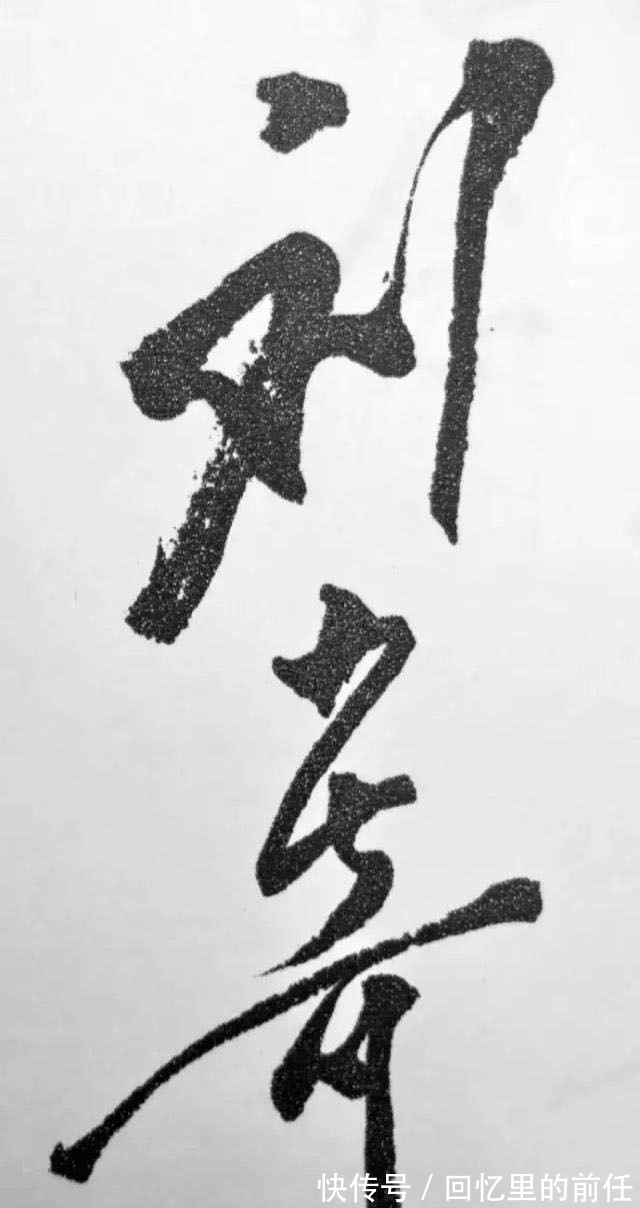 刘
快传号 / 回忆里的前任